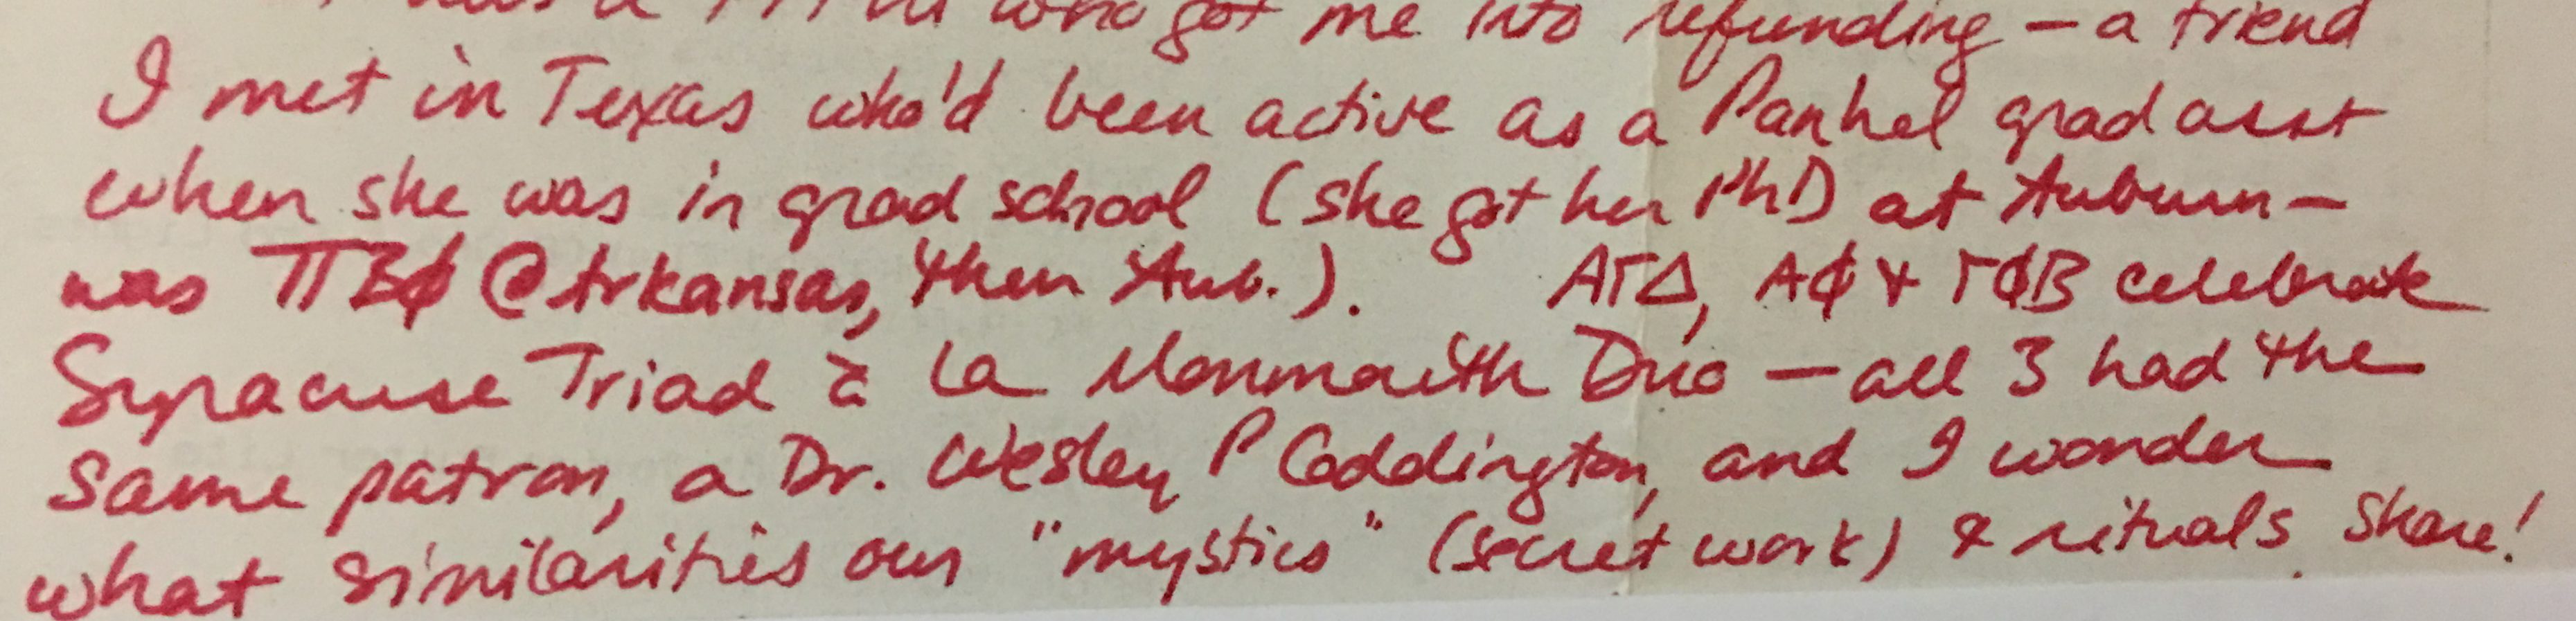 who got me into refunding — a friend
I met in Texas who'd been active as a Panhel grad asst
when she was in grad school (she got her PhD at Auburn —
was ΠΒΦ @ Arkansas, then Aub.). ΑΓΔ, ΑΦ + ΓΦΒ celebrate
Syracuse Triad à la Monmouth Duo — all 3 had the
same patron, a Dr. Wesley P Coddington, and I wonder
what similarities our "mystics" (secret work) & rituals share!